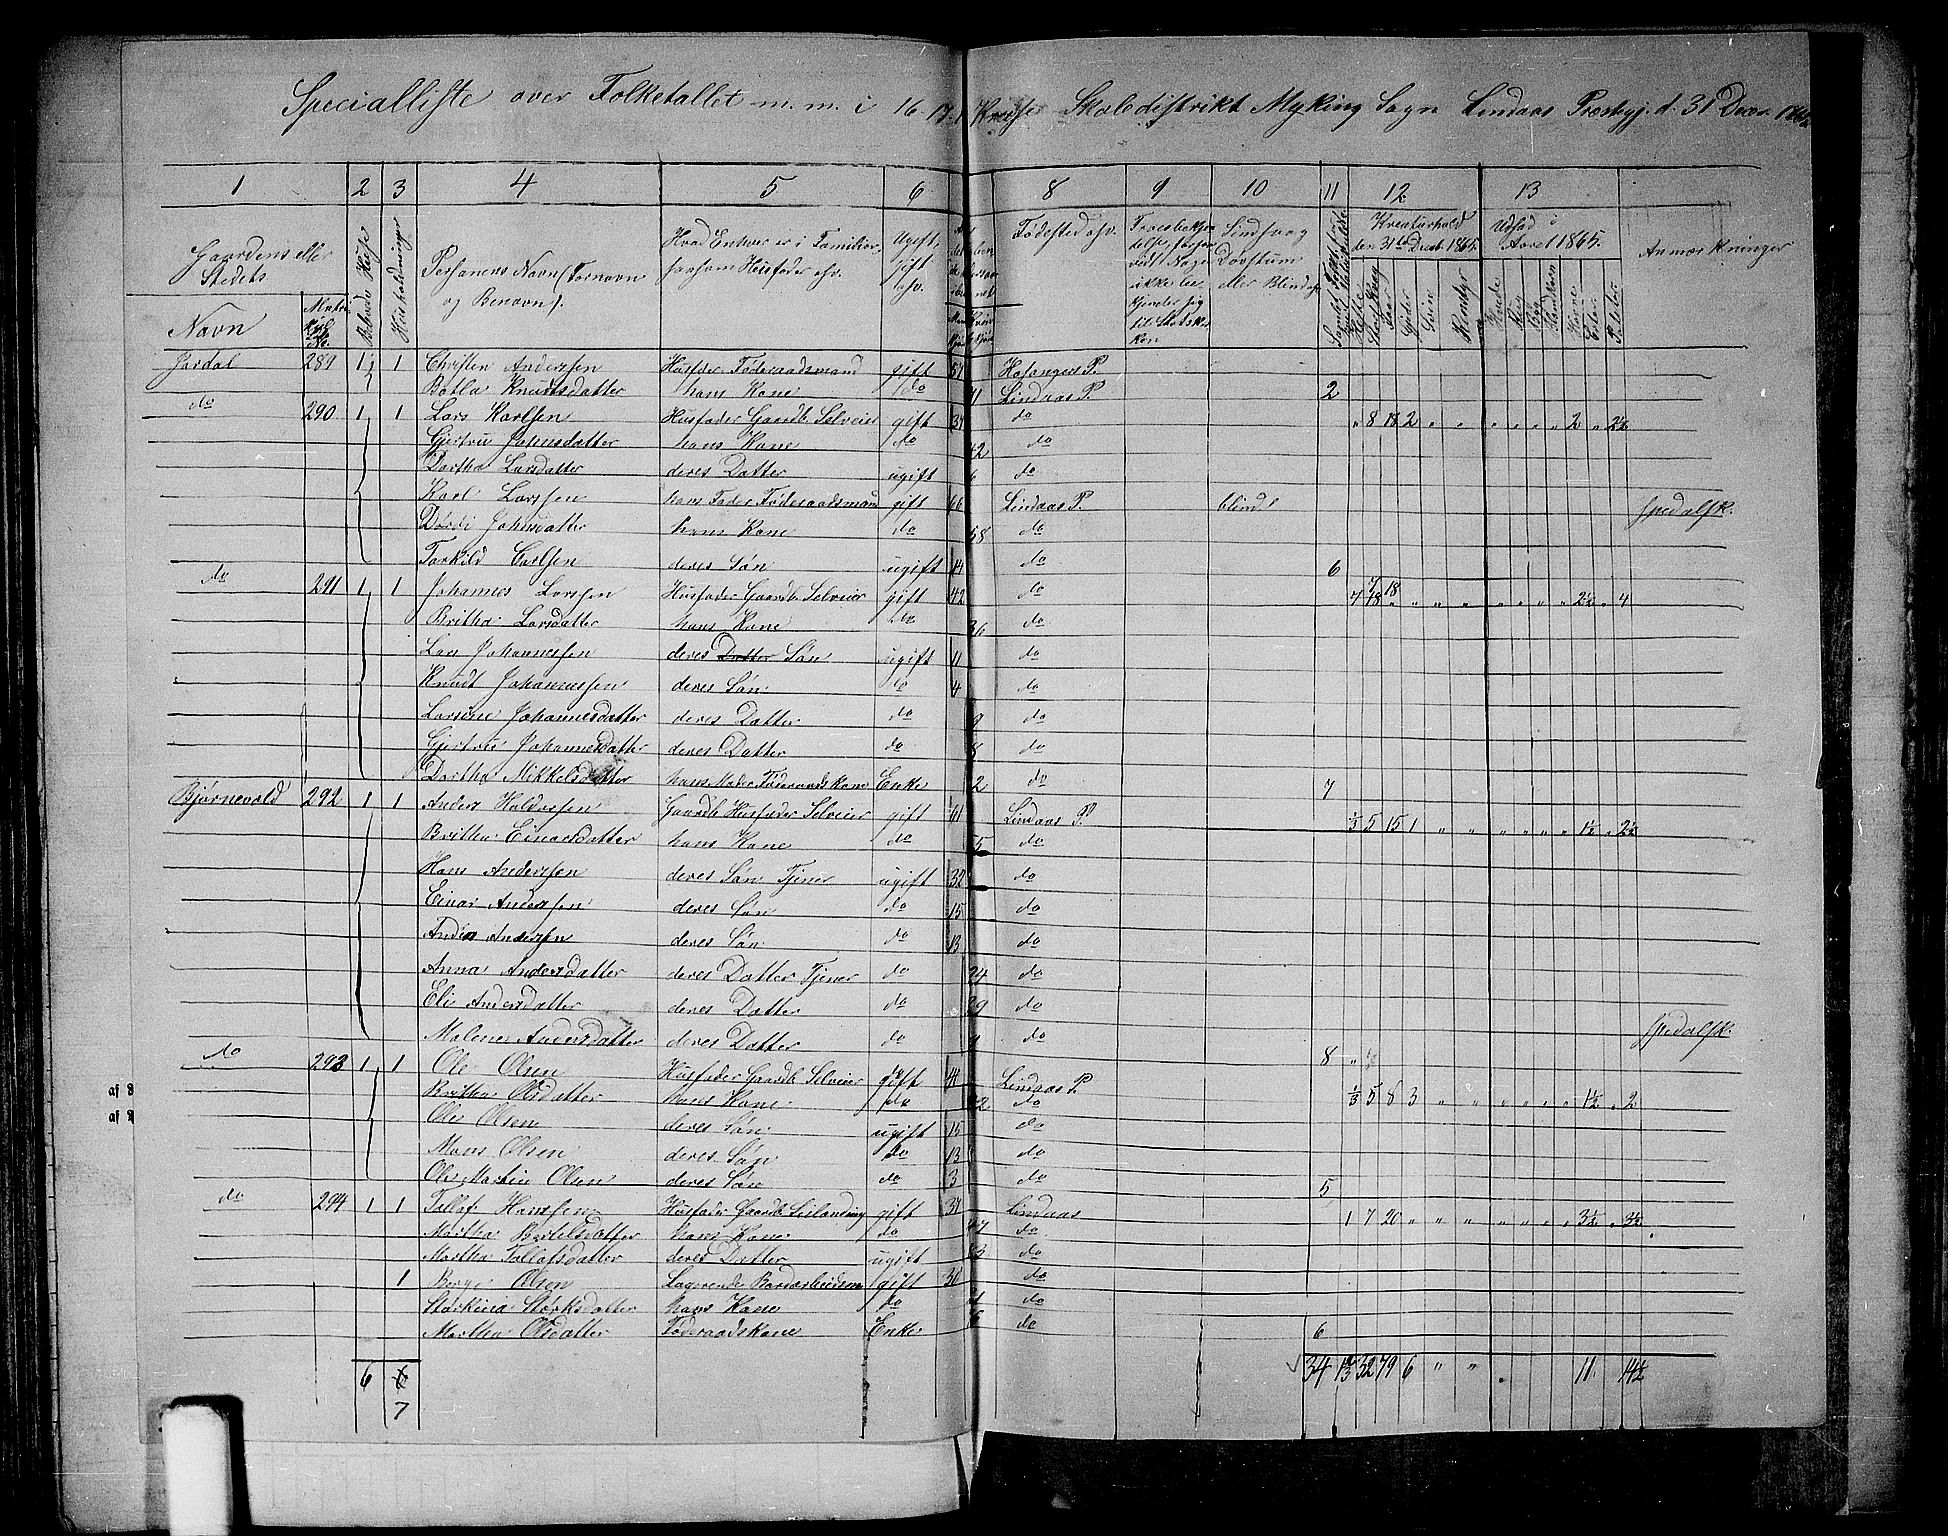 Specialliste over Folketallet m. m. i 16 17 Kredse Skoledistrikt Myking Sogn Lindaas Præstegj. d. 31 Decbr 1865
1 2 3 4 5 6 8 9 10 11 12 13
Gaardens eller Stedets
Navn
Matrikul No.
Beboede Huse
Husholdninger
Personens Navn (Fornavn og Benavn).
Hvad Enhver er i Familien, saasom Husfader osv.
Ugift, gift osv.
Fødested osv.
Sindsvag Døvstum eller Blind
Kreaturhold den 31te Decbr 1865.
Udsæd i Aaret 1865.
Anmærkninger
Heste
Faar
Gjeder
Sviin
Rensdyr
Hvede
Rug
Byg
Blandkorn
Havre
Erter
Poteter
Jordal 289 1 1 Christen Anderssen Husfader Føderaadsmand gift 57 Hosangers P.
Botla Knudtsdatter hans Kone do 71 Lindaas P. 2
do 290 1 1 Lars Karlsen Husfader Gaardb. Selveier gift 37 do " 8 18 2 " " " " " " 2 " 2½
Gjertru Johnsdatter hans Kone do 42 do
Dortha Larsdatter deres Datter ugift 6 do
Karl Larssen hans Fader Føderaadsmand gift 66 Lindaas P. blind spedalsk.
Dordi Johnsdatter hans Kone do 58 do
Torkild Carlsen deres Søn ugift 14 do 6
do 291 1 1 Johannes Larssen Husfader Gaardb. Selveier gift 42 do 2½ " 4
Britha Larsdatter hans Kone do 36 do
Lars Johannessen deres Datter Søn ugift 11 do
Knudt Johannessen deres Søn do 4 do
Larsine Johannesdatter deres Datter do 9 do
Gjertru Johannesdatter deres Datter do 8 do
Dortha Mikkelsdatter hans Moder Føderaadskone Enke 2 do 7
Bjørnevold 292 1 1 Anders Haldorsen Gaardb. Husfader Selveier gift 61 Lindaas P. ⅓ 5 15 1 " " " " " " 1½ " 2½
Britha Einarsdatter hans Kone do 5 do
Hans Anderssen deres Søn Tjener ugift 32 do
Einar Anderssen deres Søn do 15 do
Anders Anderssen deres Søn do 13 do
Anna Andersdatter deres Datter Tjener do 24 do
Eli Andersdatter deres Datter do 29 do
Malene Andersdatter deres Datter do 9 do spedalsk.
do 293 1 1 Ole Olsen Husfader Gaardb. Selveier gift 44 Lindaas P. 8 ⅓ 5 8 3 " " " " " " 1½ " 2
Britha Olsdatter hans Kone do 42 do
Ole Olsen deres Søn ugift 15 do
Mons Olsen deres Søn do 13 do
Ole Martin Olsen deres Søn do 3 do 5
do 294 1 1 Tollef Hanssen Husfader Gaardb. gift 37 Lindaas 1 7 20 " " " " " " " 3½ " 3½
Martha Bertelsdatter hans Kone do 47 do
Martha Tollefsdatter deres Datter ugift 3 do
1 Berge Olsen Logerende gift 30 do
Størkina Størksdatter hans Kone do do
Martha Olsdatter Føderaadskone Enke do 6
6 7 34 32 79 6 " " 11 14½
af
af